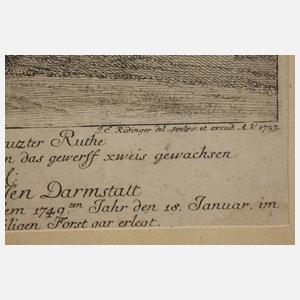 J. E. Ridinger del. sculps. et excud. A. V. 1753.
uzter Ruthe
n das gewerff xweis gewachsen
en Darmstatt
em 1749.ten Jahr den 18. Januar. im
ligen Forst gar erlegt.